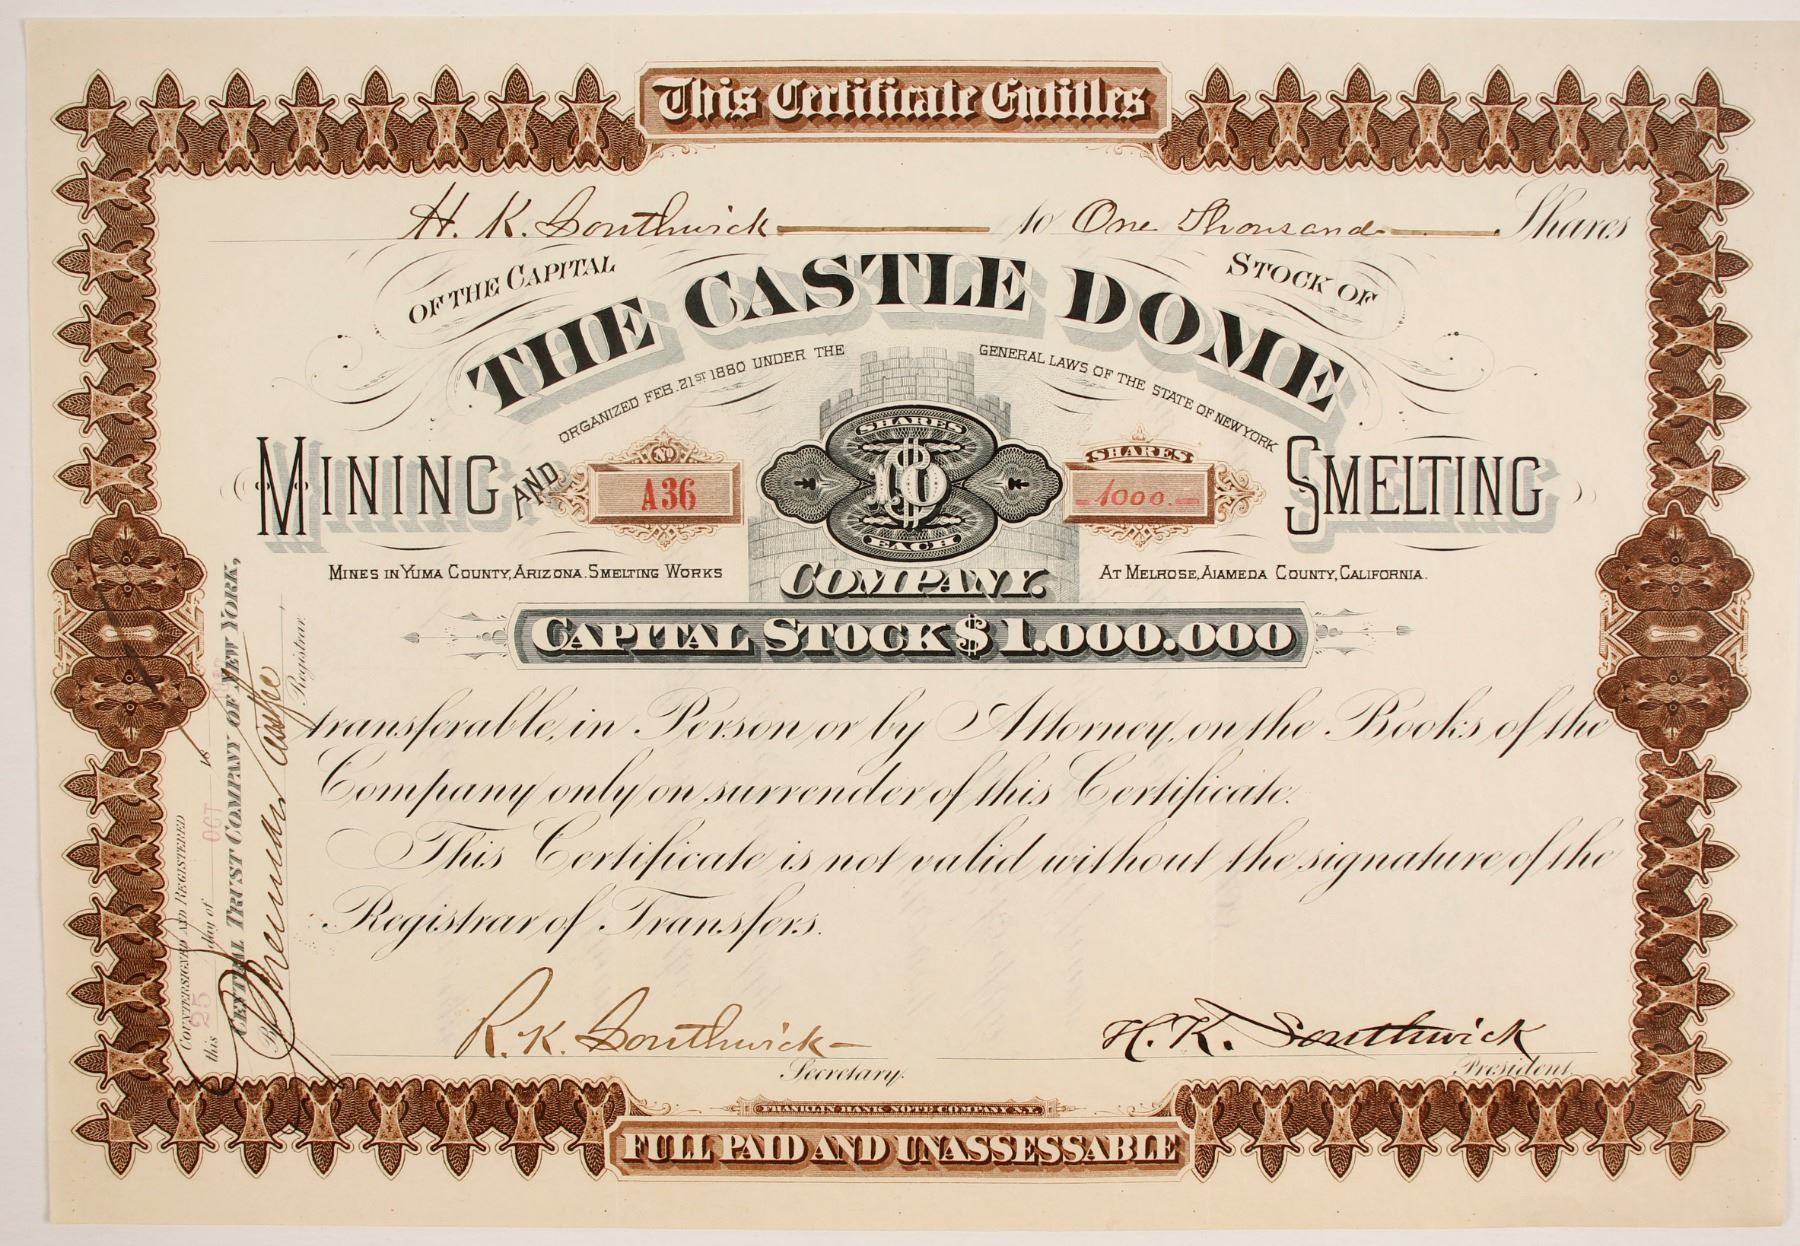 This Certificate Entitles
H. K. Southwick to One Thousand Shares
OF THE CAPITAL STOCK OF
THE CASTLE DOME
ORGANIZED FEB. 21ST 1880 UNDER THE GENERAL LAWS OF THE STATE OF NEW YORK
MINING AND SMELTING
NO A36
SHARES $10 EACH
SHARES 1000.
MINES IN YUMA COUNTY, ARIZONA. SMELTING WORKS AT MELROSE, AIAMEDA COUNTY, CALIFORNIA.
COMPANY.
CAPITAL STOCK $1.000.000
transferable, in Person or by Attorney, on the Books of the
Company only on surrender of this Certificate.
This Certificate is not valid without the signature of the
Registrar of Transfers.
R. K. Southwick H. K. Southwick
Secretary. President.
FRANKLIN BANK NOTE COMPANY N.Y.
FULL PAID AND UNASSESSABLE
COUNTERSIGNED AND REGISTERED
this 25 day of OCT 18
CENTRAL TRUST COMPANY OF NEW YORK,
By
Registrar.